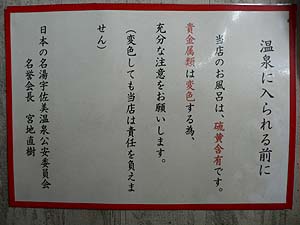 温泉に入られる前に
当店のお風呂は、硫黄含有です。
貴金属類は変色する為、
充分な注意をお願いします。
(変色しても当店は責任を負えま
せん)
日本の名湯宇佐美温泉公安委員会
名誉会長 宮地直樹